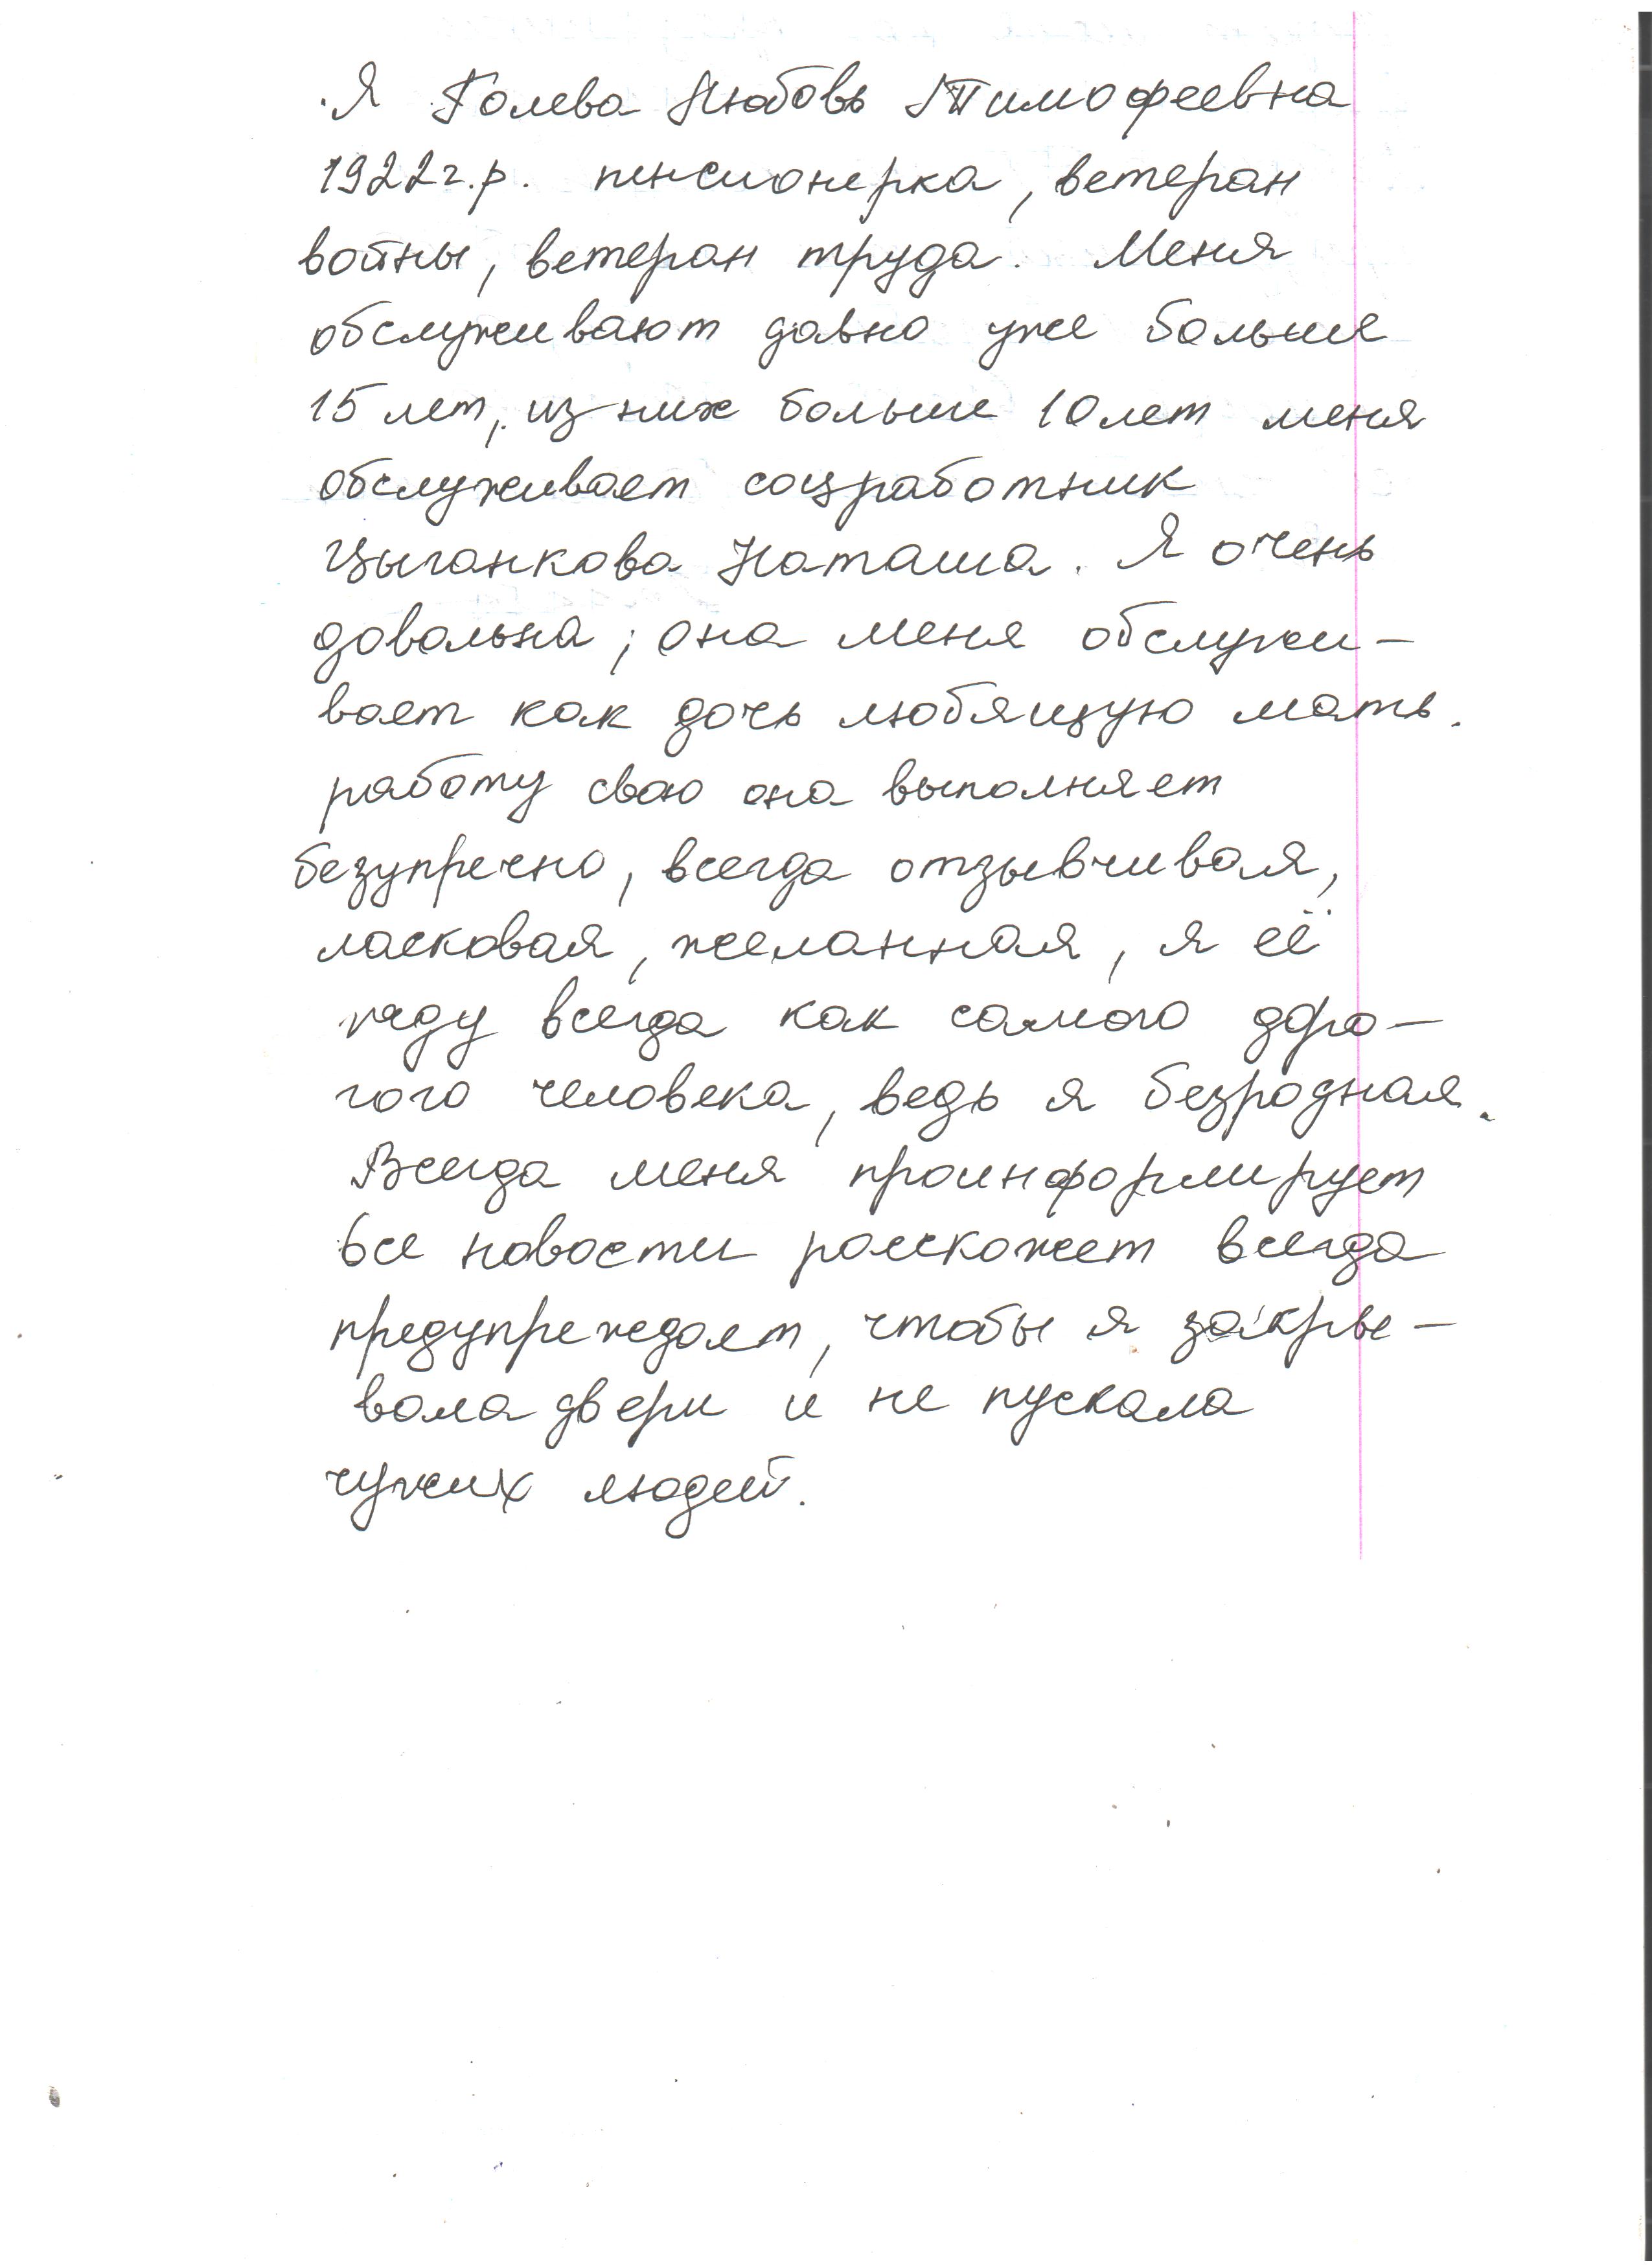 Я Голева Любовь Тимофеевна
1922 г.р. пенсионерка, ветеран
войны, ветеран труда. Меня
обслуживают давно уже больше
15 лет, из них больше 10 лет меня
обслуживает соцработник
Цыганкова Наташа. Я очень
довольна, она меня обслужи-
вает как дочь любящую мать.
работу свою она выполняет
безупречно, всегда отзывчивая,
ласковая, желанная, я её
жду всегда как самого доро-
гого человека, ведь я безродная.
Всегда меня проинформирует
все новости расскажет всегда
предупреждает, чтобы я закры-
вала двери и не пускала
чужих людей.